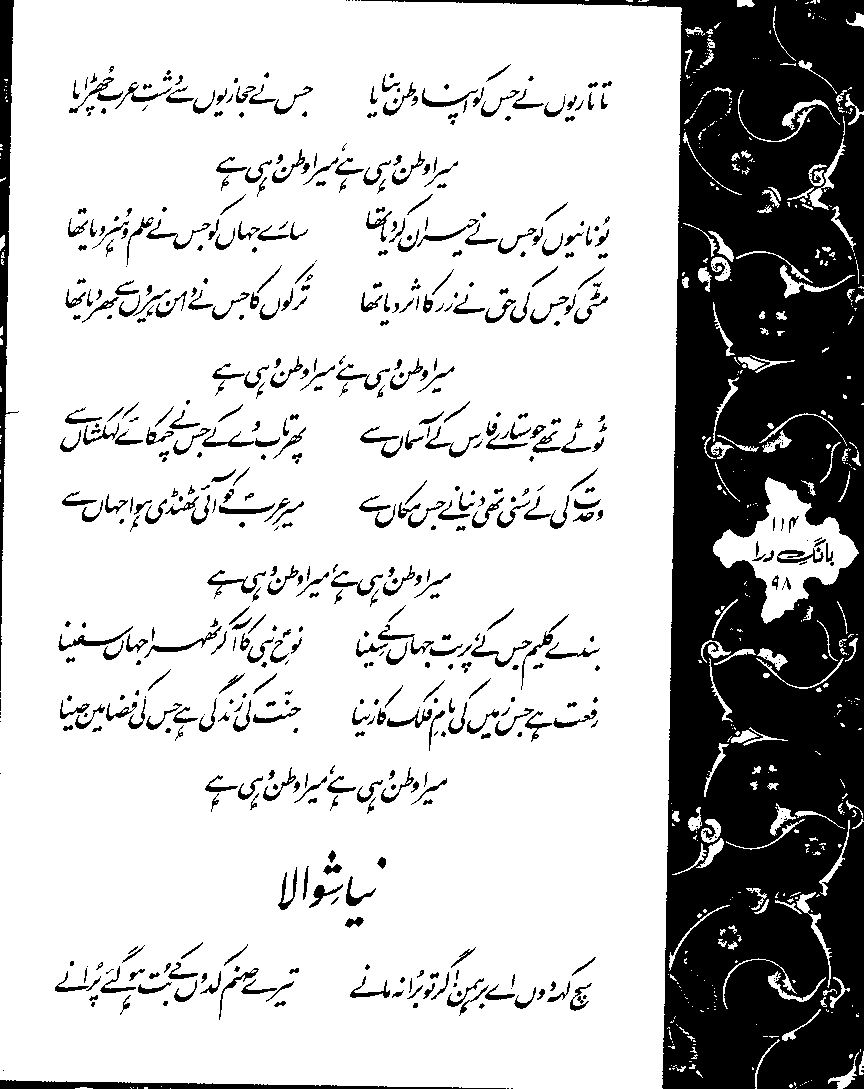 تاتاریوں نے جس کو اپنا وطن بنایا جس نے حجازیوں سے دشتِ عرب چھڑایا
میرا وطن وہی ہے، میرا وطن وہی ہے
یُونانیوں کو جس نے حیران کر دیا تھا سارے جہاں کو جس نے علم و ہُنر دیا تھا
مٹّی کو جس کی حق نے زر کا اثر دیا تھا تُرکوں کا جس نے دامن ہیروں سے بھر دیا تھا
میرا وطن وہی ہے، میرا وطن وہی ہے
ٹُوٹے تھے جو ستارے فارس کے آسماں سے پھر تاب دے کے جس نے چمکائے کہکشاں سے
وحدت کی لَے سُنی تھی دنیا نے جس مکاں سے میرِ عربؐ کو آئی ٹھنڈی ہوا جہاں سے
میرا وطن وہی ہے، میرا وطن وہی ہے
بندے کلیم جس کے، پربت جہاں کے سِینا نوحِؑ نبی کا آ کر ٹھہرا جہاں سفینا
رفعت ہے جس زمیں کی بامِ فلک کا زینا جنّت کی زندگی ہے جس کی فضا میں جینا
میرا وطن وہی ہے، میرا وطن وہی ہے
نیا شوالا
سچ کہہ دوں اے برہمن! گر تو بُرا نہ مانے تیرے صنم کدوں کے بُت ہو گئے پُرانے
۱۱۴
بانگِ درا
۹۸